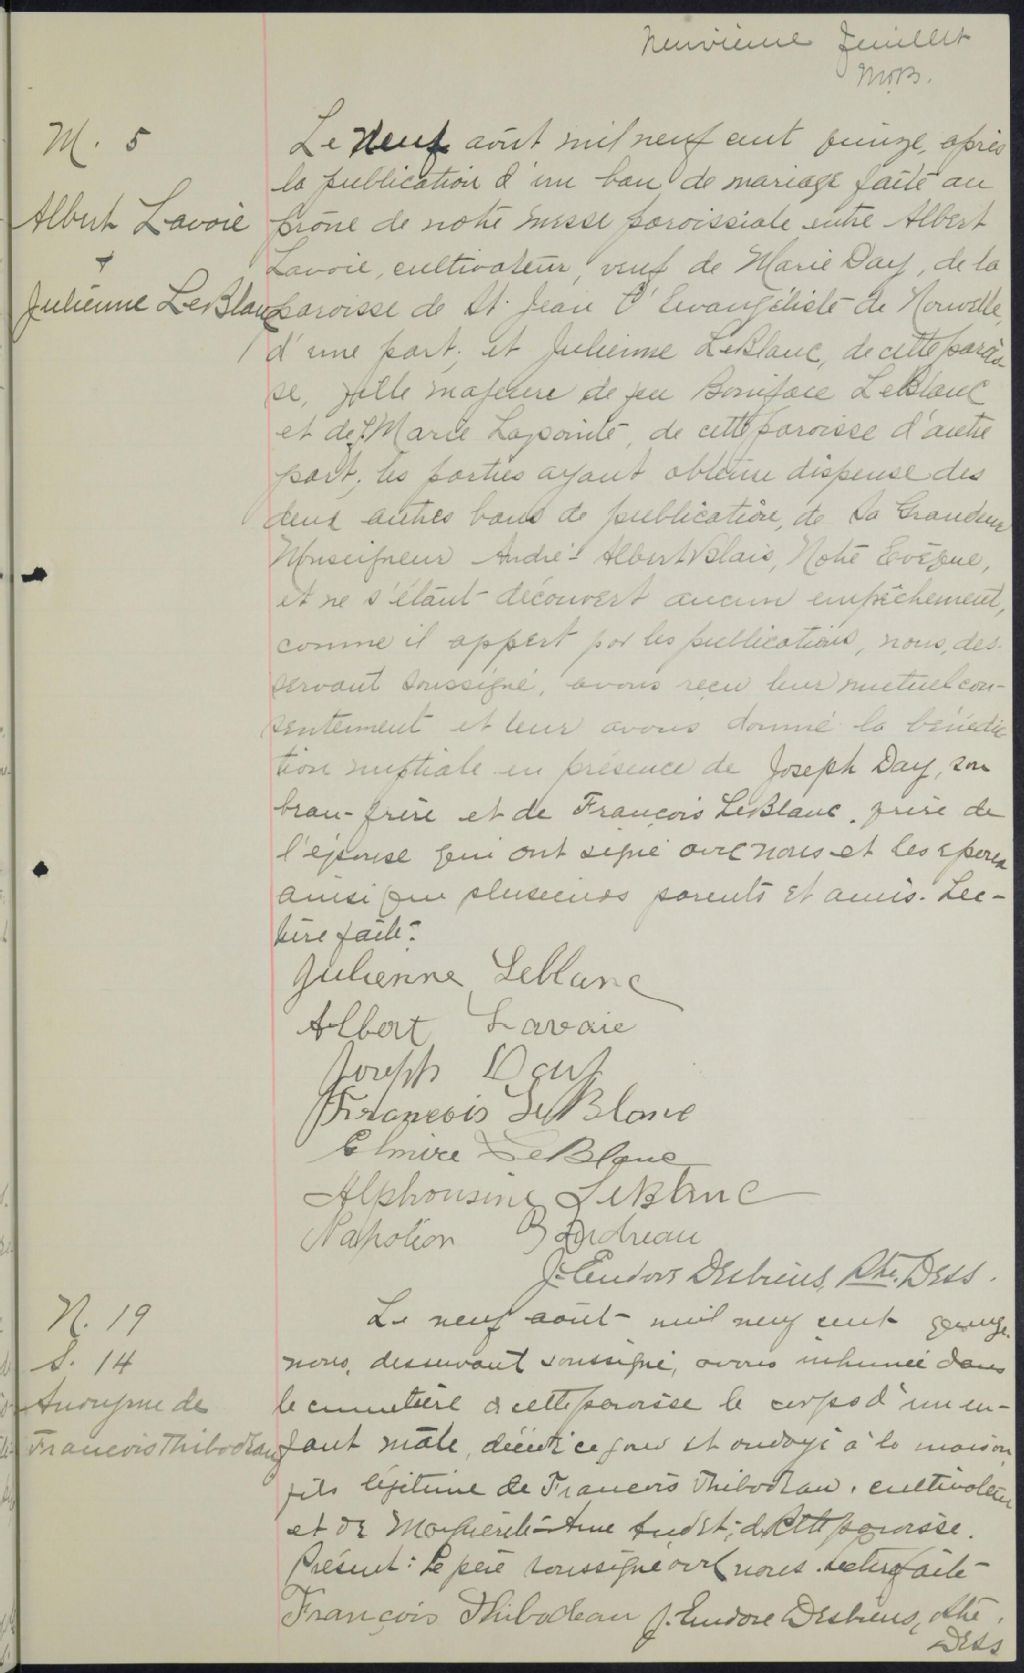 Neuvième Feuillet
M.B.
M. 5
Albert Lavoie
+
Julienne LeBlanc
Le Neuf août mil neuf cent quinze, après
la publication d'un ban de mariage faite au
prône de notre messe paroissiale entre Albert
Lavoie, cultivateur, veuf de Marie Day, de la
paroisse de St. Jean l'Evangéliste de Nouvelle,
d'une part; et Julienne LeBlanc, de cette parois
se, fille majeure de feu Boniface LeBlanc
et de Marie Lapointe, de cette paroisse d'autre
part; les parties ayant obtenu dispense des
deux autres bans de publication, de Sa Grandeur
Monseigneur André-Albert Blais, Notre Evêque,
et ne s'étant découvert aucun empêchement,
comme il appert par les publications, nous, des-
servant soussigné, avons reçu leur mutuel con-
sentement et leur avons donné la bénédic
tion nuptiale en présence de Joseph Day, son
beau-frère et de François LeBlanc, frère de
l'épouse qui ont signé avec nous et les époux
ainsi que plusieurs parents et amis. Lec-
ture faite.
Julienne Leblanc
Albert Lavoie
Joseph Day
François LeBlanc
Elmire LeBlanc
Alphonsine LeBlanc
Napoléon Boudreau
J. Eudore Desbiens, Ptre. Dess.
N. 19
S. 14
Anonyme de
Francois Thibodeau
Le neuf août mil neuf cent quinze,
nous, desservant soussigné, avons inhumé dans
le cimetière de cette paroisse le corps d'un en-
fant mâle, décédé ce jour et ondoyé à la maison,
fils légitime de Francois Thibodeau, cultivateur
et de Marguerite-Anne Audet, de cette paroisse.
Présent: Le père soussigné avec nous. Lecture faite
François Thibodeau J. Eudore Desbiens, Ptre.
Dess